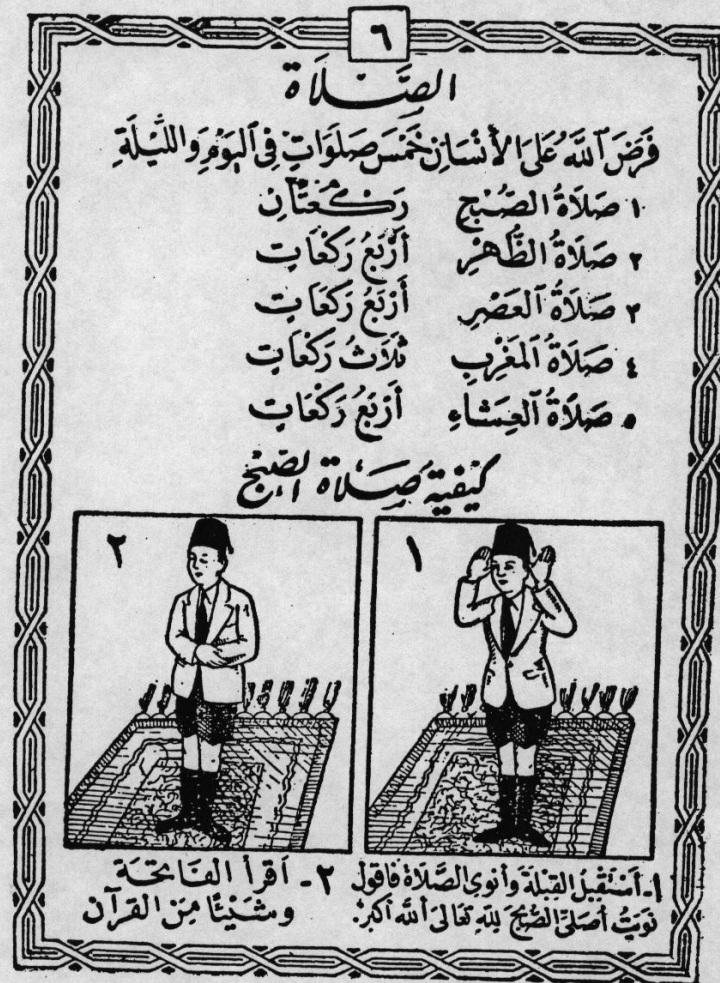 ٦
الصَّلَاة
فَرَضَ ٱللَّهُ عَلَى الأَنْسَانِ خَمْسَ صَلَوَاتٍ فِي ٱلْيَوْمِ وَاللَّيْلَةِ
١ صَلَاةُ الصُّبْحِ رَكْعَتَانِ
٢ صَلَاةُ الظُّهْرِ أَرْبَعُ رَكَعَاتٍ
٣ صَلَاةُ ٱلعَصْرِ أَرْبَعُ رَكَعَاتٍ
٤ صَلَاةُ ٱلمَغْرِبِ ثَلَاثُ رَكَعَاتٍ
٥ صَلَاةُ ٱلعِشَاءِ أَرْبَعُ رَكَعَاتٍ
كيفية صَلَاة الصُّبْح
١
٢
١- أَسْتَقْبِلُ القِبْلَةَ وَأَنْوِي الصَّلَاةَ فَأَقُولُ
نَوَيْتُ أُصَلِّي الصُّبْحَ لِلَّهِ تَعَالَى ٱللَّهُ أَكْبَرُ.
٢- أَقْرَأُ الْفَاتِحَةَ
وَشَيْئًا مِنَ القُرآن